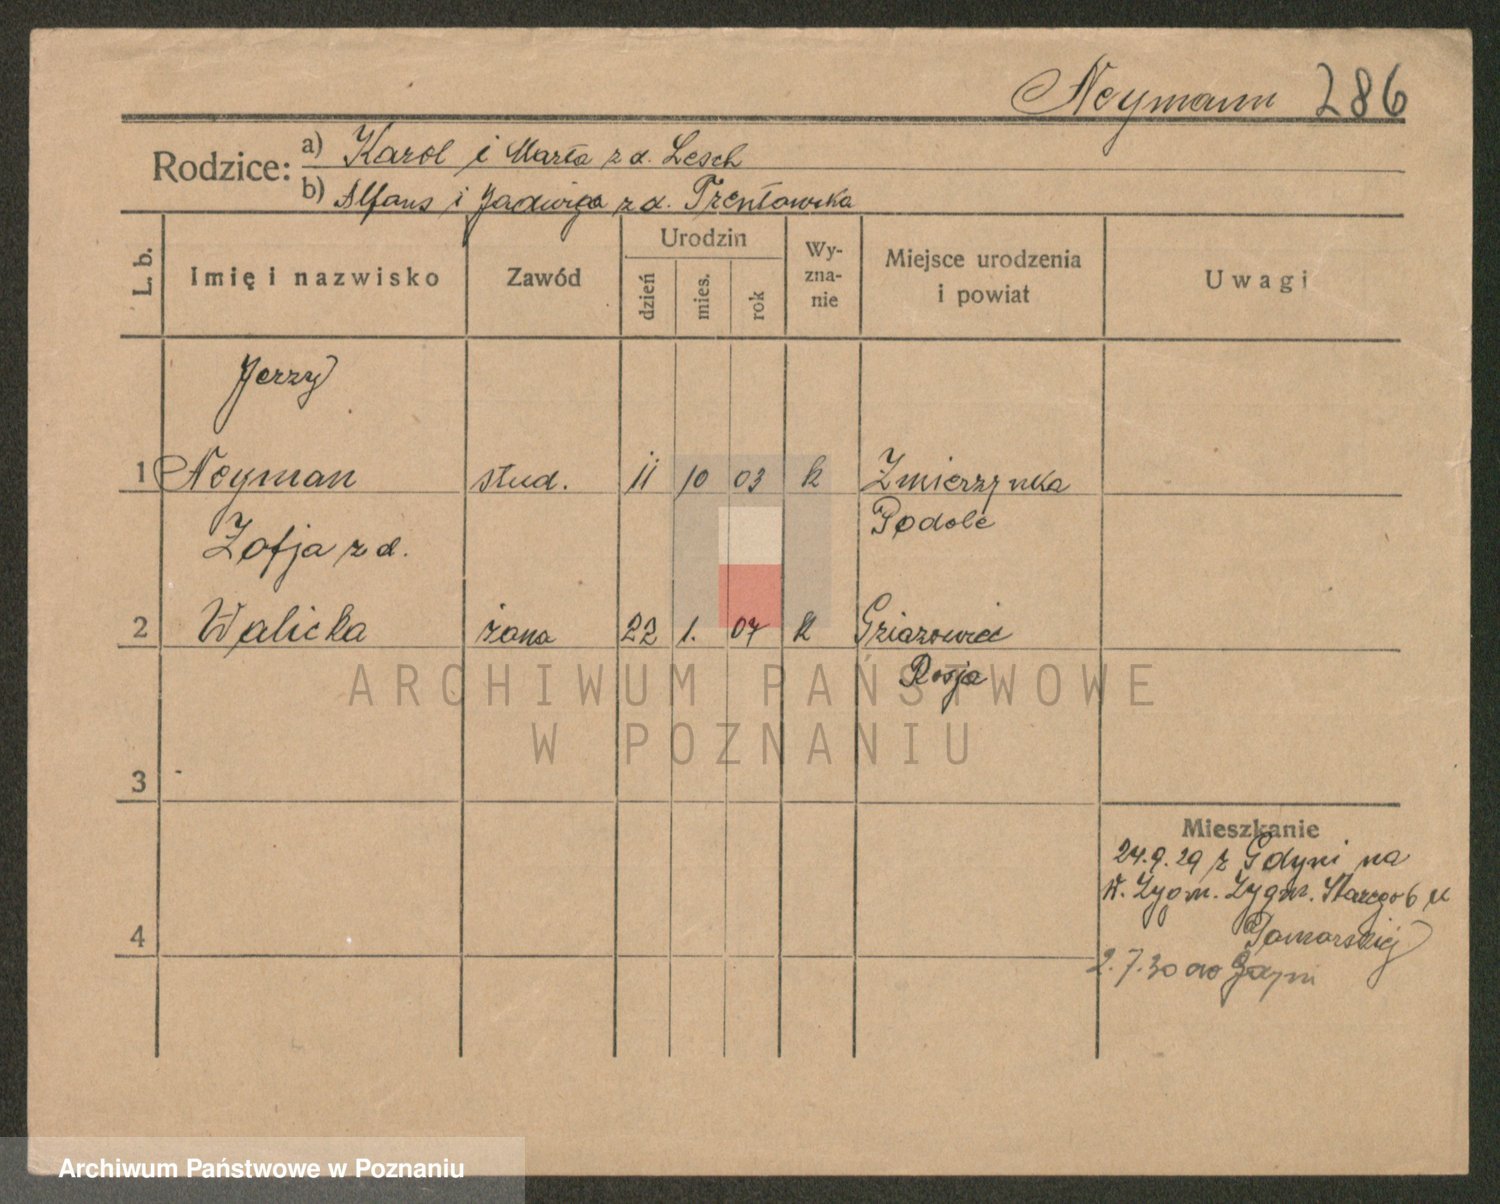 Neymann 286
Rodzice: a) Karol i Marta z d. Lesch
b) Alfons i Jadwiga z d. Trentowska
L. b. Imię i nazwisko Zawód Urodzin dzień mies. rok Wy-zna-nie Miejsce urodzenia i powiat Uwagi
Jerzy
1 Neyman stud. 11 10 03 k Zmierzynka
Podole
Zofja z d.
2 Walicka żona 22 1. 07 k
Rosja
3
4
Mieszkanie
24.9.29 z Gdyni na
Zygm. Starego 6 u
Pomorskiej
2.7.30 do Gdyni
ARCHIWUM PAŃSTWOWE
W POZNANIU
Archiwum Państwowe w Poznaniu